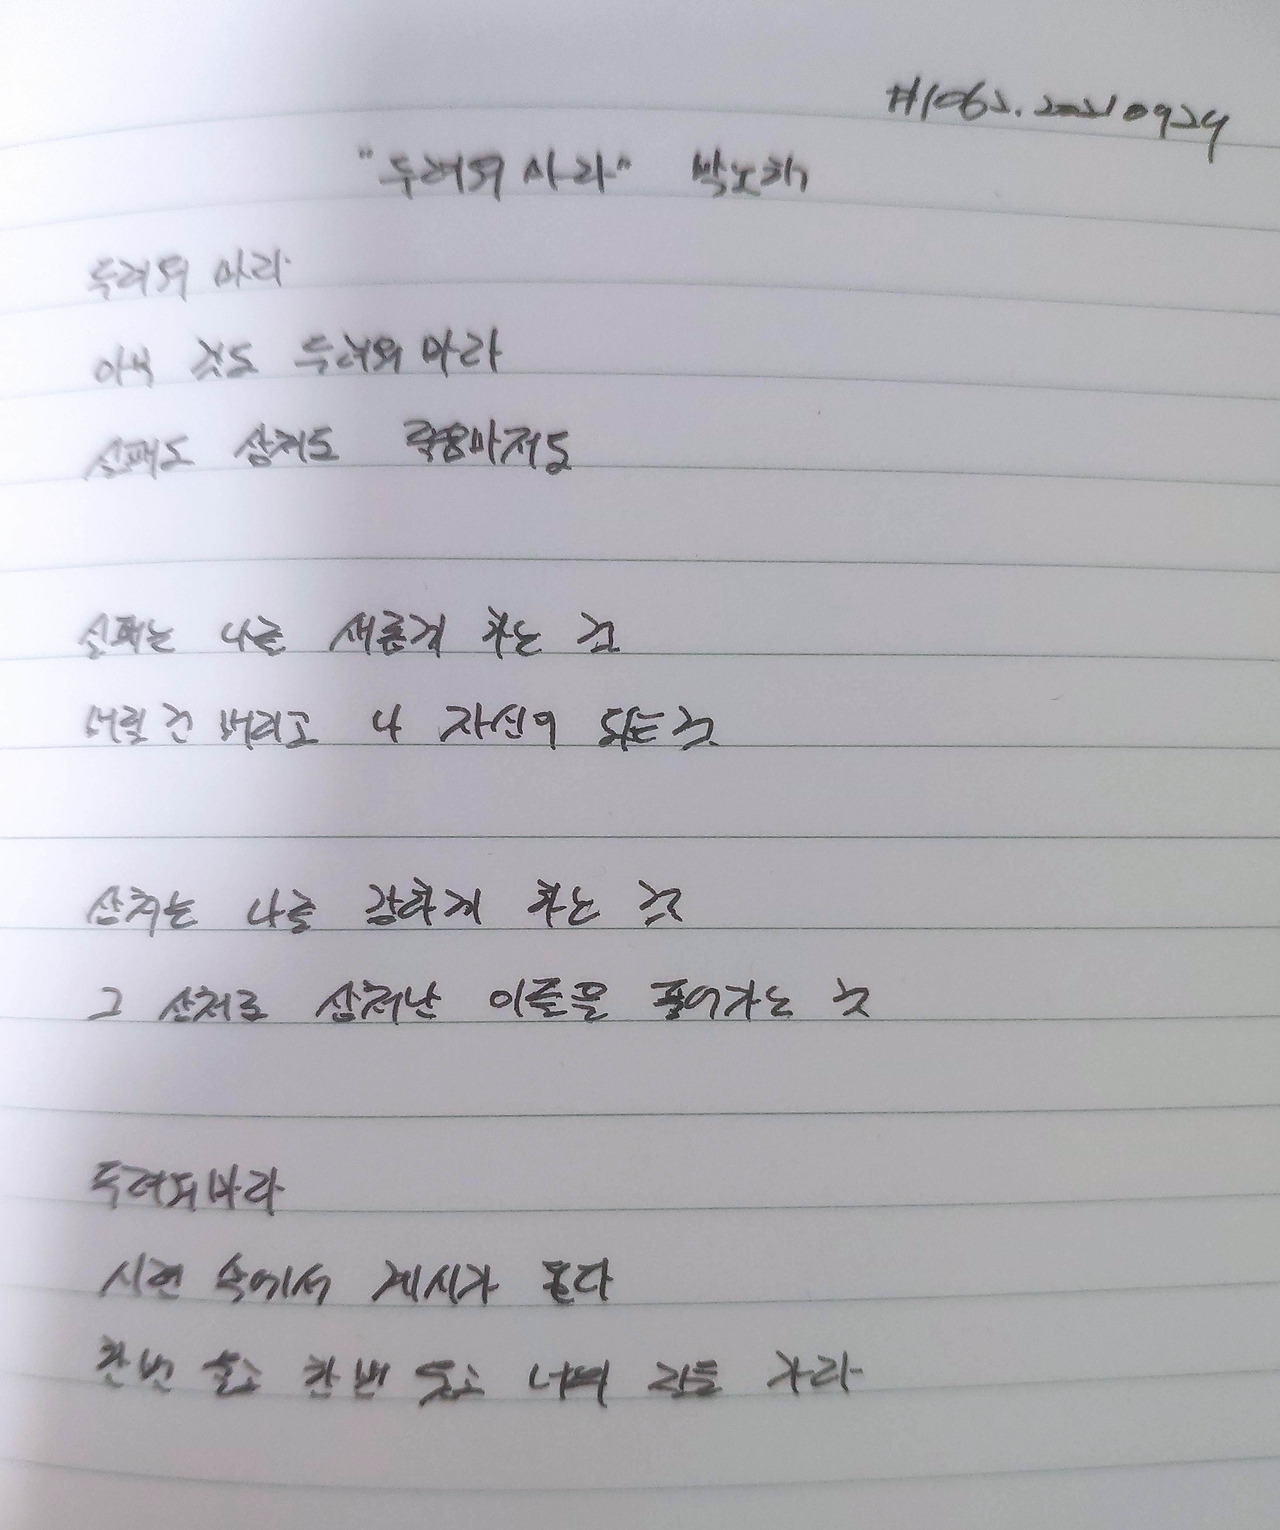 #1062. 20210924
"두려워 마라" 박노해
두려워 마라
아무 것도 두려워 마라
실패도 상처도 죽음마저도
실패는 나를 새롭게 하는 것
버릴 건 버리고 나 자신이 되는 것
상처는 나를 강하게 하는 것
그 상처로 상처난 이들을 품어가는 것
두려워 마라
시련 속에서 계시가 온다
한 번 울고 한 번 웃고 너의 길을 가라